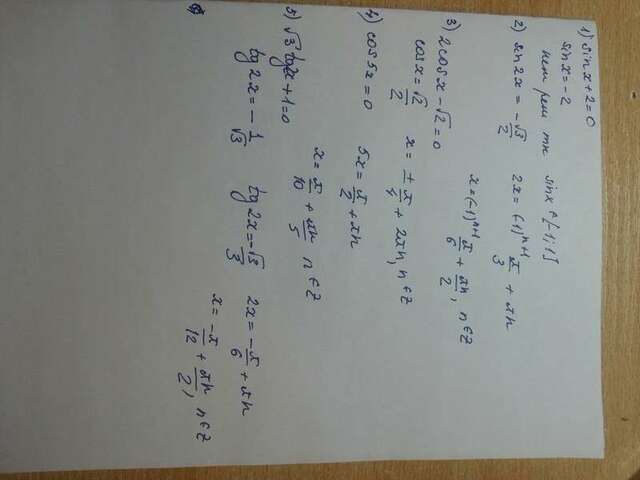 1) sin x + 2 = 0
sin x = -2
нет реш тк sin x ∈ [-1; 1]
2) sin 2x = -√3/2   2x = (-1)^(n+1) π/3 + πn
x = (-1)^(n+1) π/6 + πn/2, n ∈ Z
3) 2cos x - √2 = 0
cos x = √2/2   x = ± π/4 + 2πn, n ∈ Z
4) cos 5x = 0   5x = π/2 + πn
x = π/10 + πn/5 n ∈ Z
5) √3 tg 2x + 1 = 0
tg 2x = -1/√3   tg 2x = -√3/3   2x = -π/6 + πn
x = -π/12 + πn/2, n ∈ Z